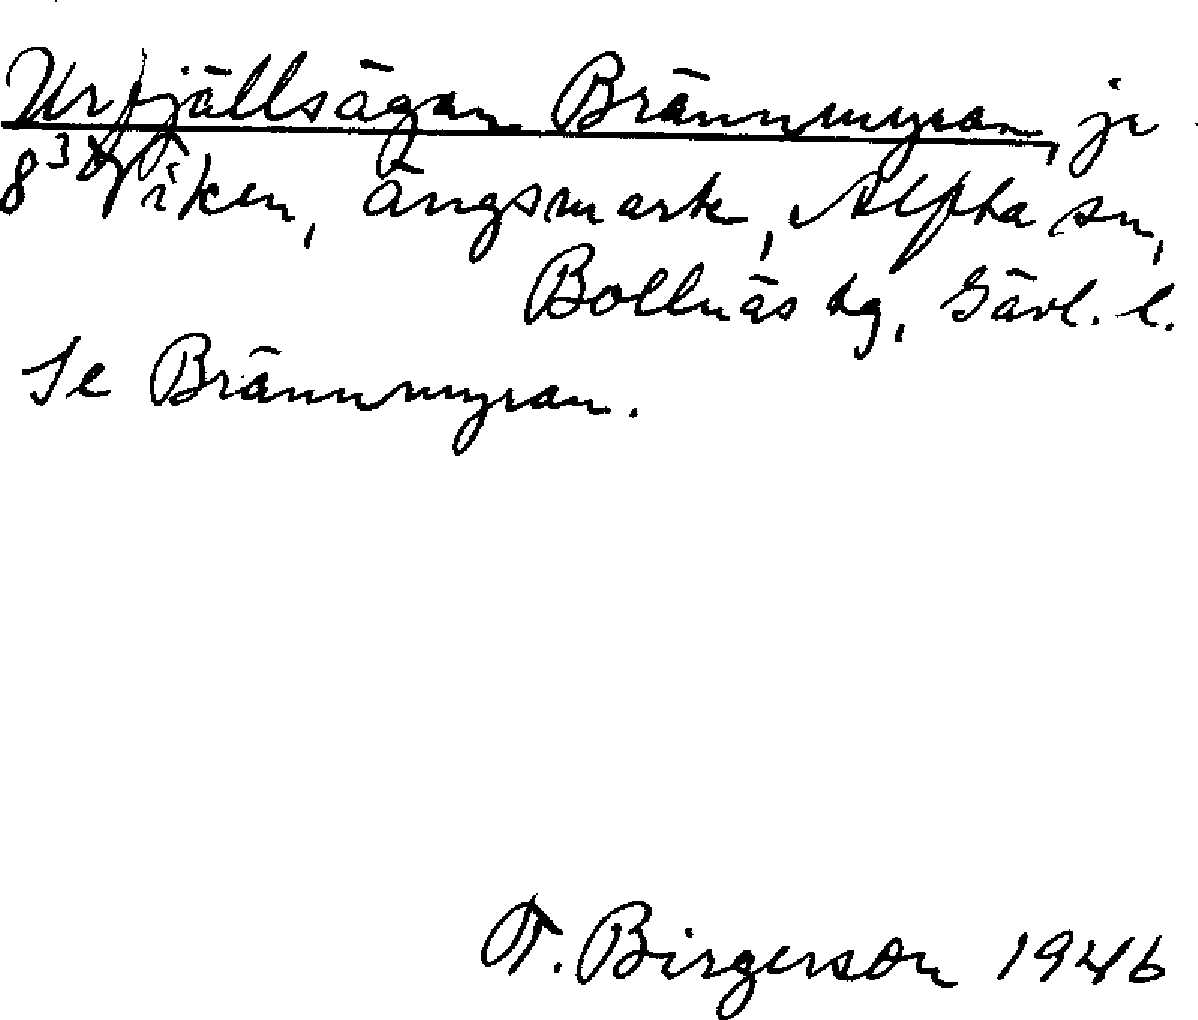 Urfjällsägan Brännmyran, je
8³⁸ Viken, ängsmark, Alfta sn,
Bollnäs tg, Gävl. l.
Se Brännmyran.
F. Birgerson 1946